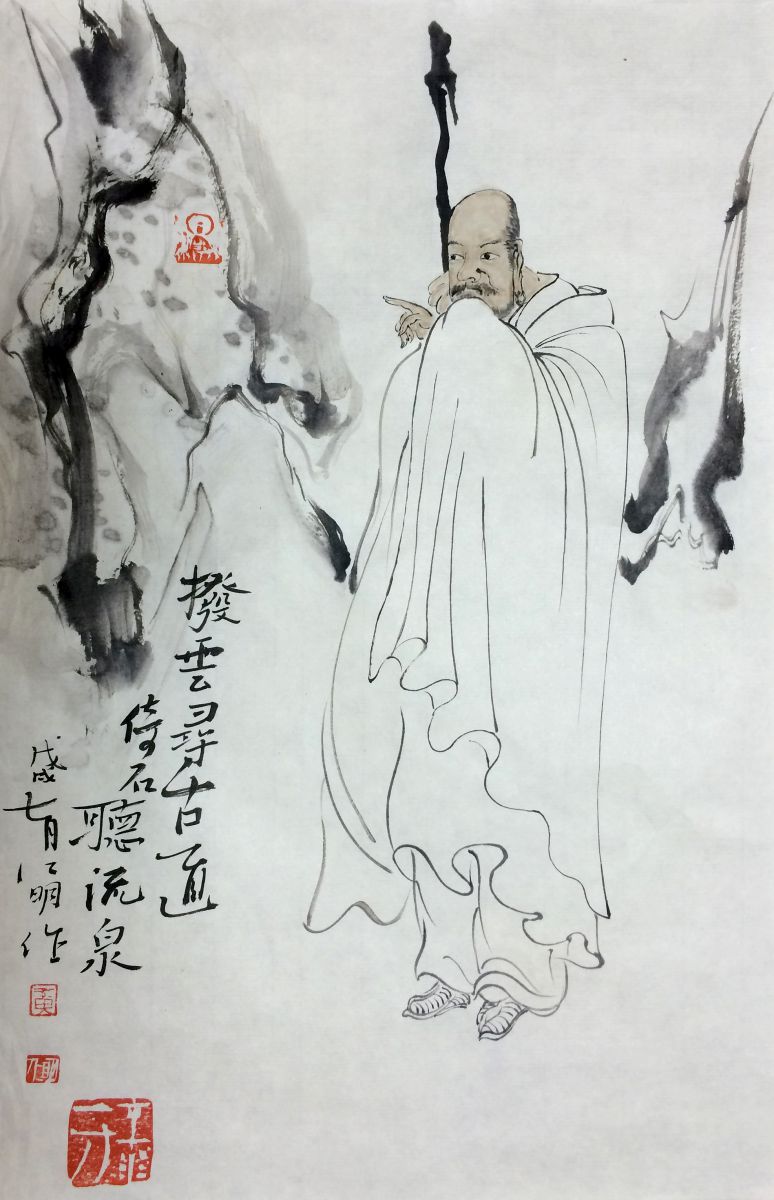 撥雲尋古道
倚石聽流泉
戊戌七月仁明作
黃